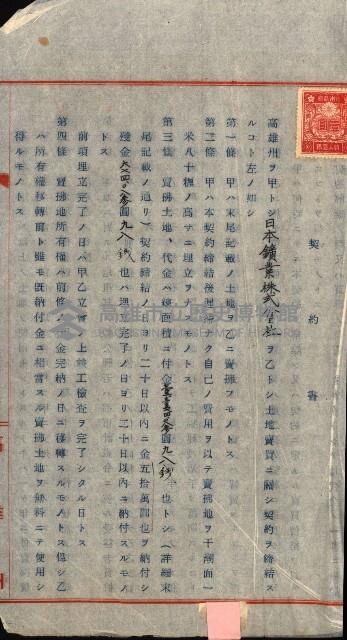 契約書
高雄州ヲ甲トシ日本鑛業株式会社ヲ乙トシ土地賣買ニ關シ契約ヲ締結ス
ルコト左ノ如シ
第一條 甲ハ末尾記載ノ土地ヲ乙ニ賣拂フモノトス
第二條 甲ハ本契約締結後遲滯ナク自己ノ費用ヲ以テ賣拂地ヲ干潮面一
米八十糎ノ高サニ埋立ヲナスモノトス
第三條 賣拂土地ノ代金ハ總面積ニ付金 圓九八錢也トシ(詳細末
尾記載ノ通リ)契約締結ノ日ヨリ二十日以内ニ金五拾萬圓也ヲ納付シ
殘金 圓九八錢也ハ埋立完了ノ日ヨリ二十日以内ニ納付スルモノ
トス
前項埋立完了ノ日ハ甲乙立會ノ上竣工檢査ヲ完了シタル日トス
第四條 賣拂地所有權ハ前條ノ代金完納ノ日ニ移轉スルモノトス但シ乙
ハ所有權移轉前ト雖モ既納付金ニ相當スル賣拂土地ヲ無料ニテ使用シ
得ルモノトス
高雄市立歷史博物館
高雄州